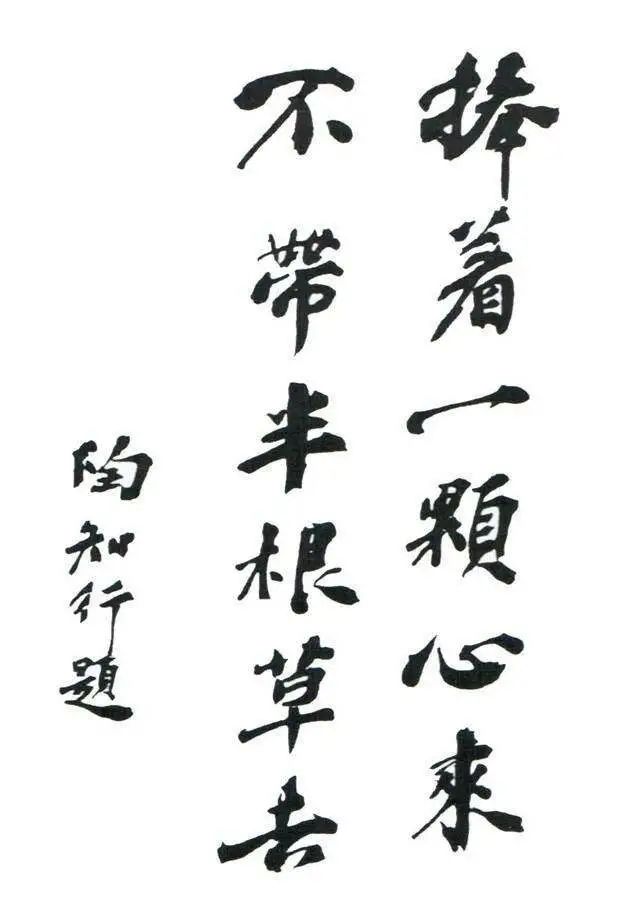 捧着一顆心來
不帶半根草去
陶知行題